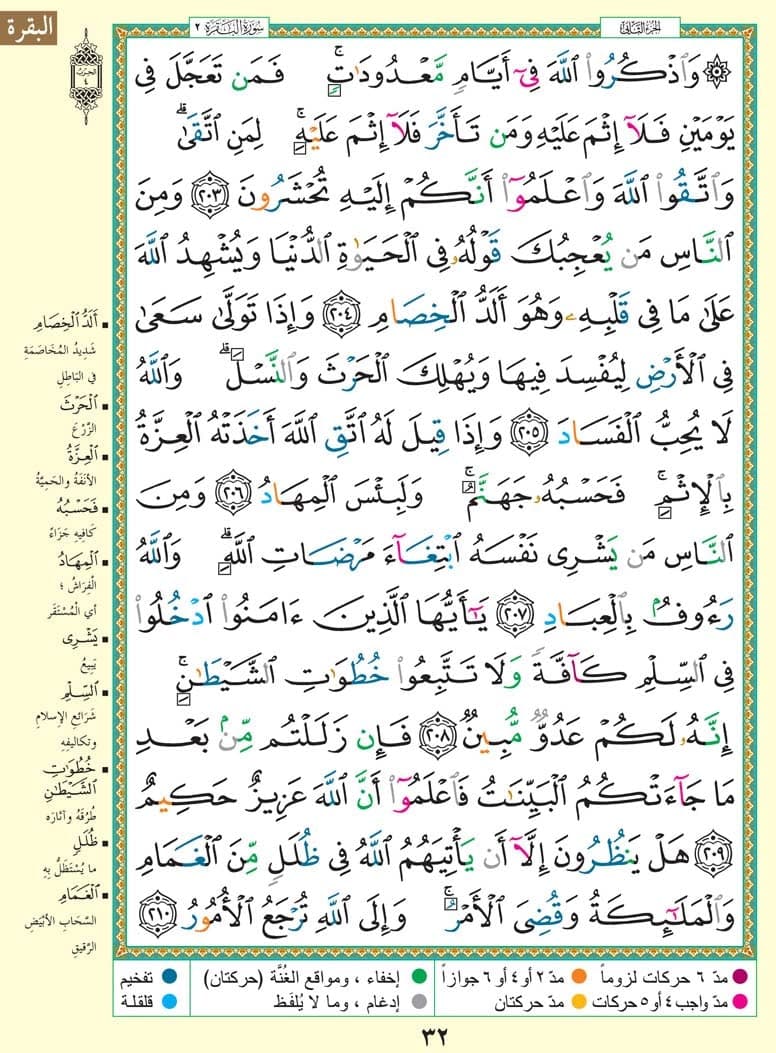 البقرة
سُورَةُ البَقَرَةِ ٢
الجزء الثاني
الحزب
٤
۞ وَٱذْكُرُوا۟ ٱللَّهَ فِىٓ أَيَّامٍ مَّعْدُودَٰتٍ ۚ فَمَن تَعَجَّلَ فِى
يَوْمَيْنِ فَلَآ إِثْمَ عَلَيْهِ وَمَن تَأَخَّرَ فَلَآ إِثْمَ عَلَيْهِ ۚ لِمَنِ ٱتَّقَىٰ ۗ
وَٱتَّقُوا۟ ٱللَّهَ وَٱعْلَمُوٓا۟ أَنَّكُمْ إِلَيْهِ تُحْشَرُونَ ٢٠٣ وَمِنَ
ٱلنَّاسِ مَن يُعْجِبُكَ قَوْلُهُۥ فِى ٱلْحَيَوٰةِ ٱلدُّنْيَا وَيُشْهِدُ ٱللَّهَ
عَلَىٰ مَا فِى قَلْبِهِۦ وَهُوَ أَلَدُّ ٱلْخِصَامِ ٢٠٤ وَإِذَا تَوَلَّىٰ سَعَىٰ
فِى ٱلْأَرْضِ لِيُفْسِدَ فِيهَا وَيُهْلِكَ ٱلْحَرْثَ وَٱلنَّسْلَ ۗ وَٱللَّهُ
لَا يُحِبُّ ٱلْفَسَادَ ٢٠٥ وَإِذَا قِيلَ لَهُ ٱتَّقِ ٱللَّهَ أَخَذَتْهُ ٱلْعِزَّةُ
بِٱلْإِثْمِ ۚ فَحَسْبُهُۥ جَهَنَّمُ ۚ وَلَبِئْسَ ٱلْمِهَادُ ٢٠٦ وَمِنَ
ٱلنَّاسِ مَن يَشْرِى نَفْسَهُ ٱبْتِغَآءَ مَرْضَاتِ ٱللَّهِ ۗ وَٱللَّهُ
رَءُوفٌۢ بِٱلْعِبَادِ ٢٠٧ يَٰٓأَيُّهَا ٱلَّذِينَ ءَامَنُوا۟ ٱدْخُلُوا۟
فِى ٱلسِّلْمِ كَآفَّةً وَلَا تَتَّبِعُوا۟ خُطُوَٰتِ ٱلشَّيْطَٰنِ ۚ
إِنَّهُۥ لَكُمْ عَدُوٌّ مُّبِينٌ ٢٠٨ فَإِن زَلَلْتُم مِّنۢ بَعْدِ
مَا جَآءَتْكُمُ ٱلْبَيِّنَٰتُ فَٱعْلَمُوٓا۟ أَنَّ ٱللَّهَ عَزِيزٌ حَكِيمٌ
٢٠٩ هَلْ يَنظُرُونَ إِلَّآ أَن يَأْتِيَهُمُ ٱللَّهُ فِى ظُلَلٍ مِّنَ ٱلْغَمَامِ
وَٱلْمَلَٰٓئِكَةُ وَقُضِىَ ٱلْأَمْرُ ۚ وَإِلَى ٱللَّهِ تُرْجَعُ ٱلْأُمُورُ ٢١٠
▪ أَلَدُّ ٱلْخِصَامِ
شَدِيدُ المُخَاصَمَةِ
فِي البَاطِلِ
▪ ٱلْحَرْثَ
الزَّرْعَ
▪ ٱلْعِزَّةُ
الأنَفَةُ والحَمِيَّةُ
▪ فَحَسْبُهُ
كَافِيهِ جَزَاءً
▪ ٱلْمِهَادُ
الْفِرَاشُ ؛
أي الْمُسْتَقَر
▪ يَشْرِى
يَبِيعُ
▪ ٱلسِّلْمِ
شَرَائِعِ الإِسلامِ
وتكالِيفِهِ
▪ خُطُوَٰتِ
ٱلشَّيْطَٰنِ
طُرُقَهُ وآثارَه
▪ ظُلَلٍ
ما يُسْتَظَلُّ بِهِ
▪ ٱلْغَمَامِ
السَّحَابِ الأَبْيَضِ
الرَّقِيقِ
مدّ ٦ حركات لزوماً
مدّ ٢ أو ٤ أو ٦ جوازاً
إخفاء ، ومواقع الغُنَّة (حركتان)
تفخيم
مدّ واجب ٤ أو ٥ حركات
مدّ حركتان
إدغام ، وما لا يُلفَظ
قلقلة
٣٢